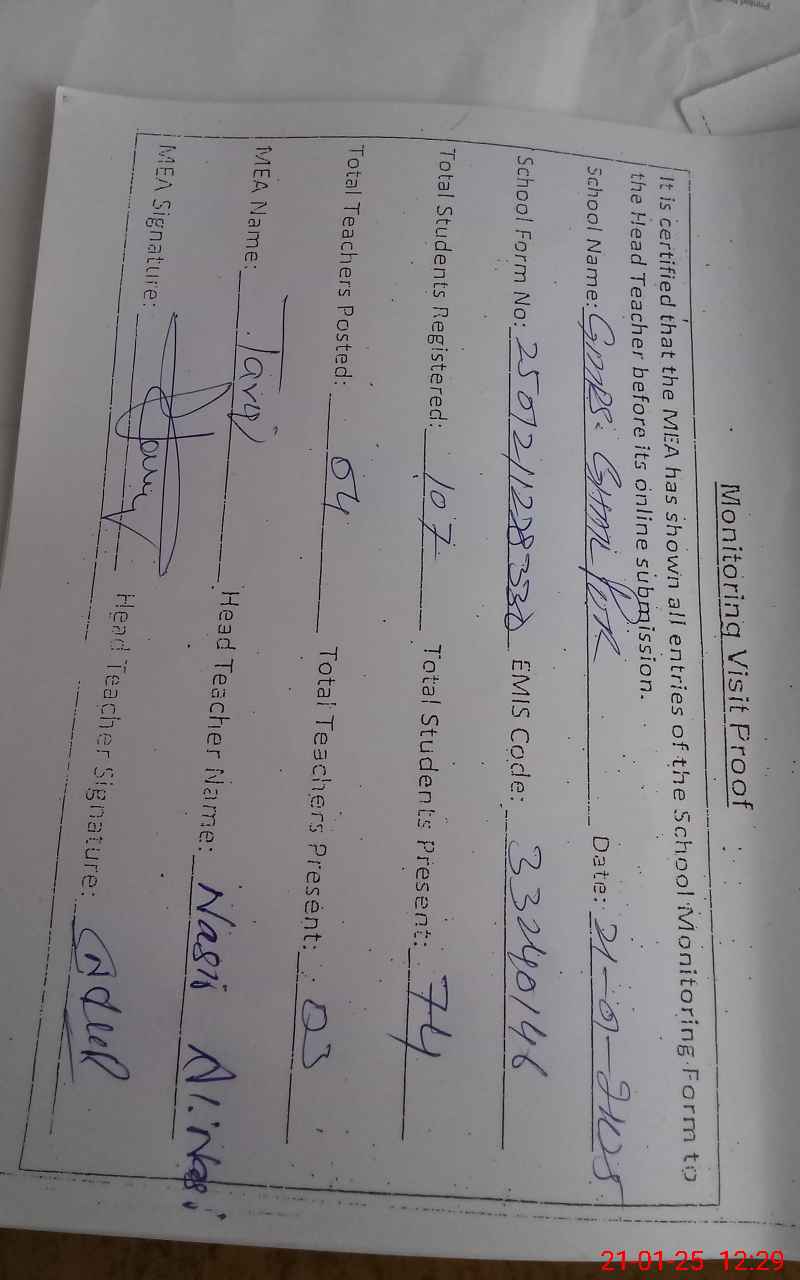 Monitoring Visit Proof
It is certified that the MEA has shown all entries of the School Monitoring Form to
the Head Teacher before its online submission.
School Name: GMPS Date: 21-01-2025
School Form No: EMIS Code: 33240146
Total Students Registered: 107 Total Students Present: 74
Total Teachers Posted: 04 Total Teachers Present: 03
MEA Name: Tariq Head Teacher Name: Ali
MEA Signature: Head Teacher Signature:
21-01-25 12:29